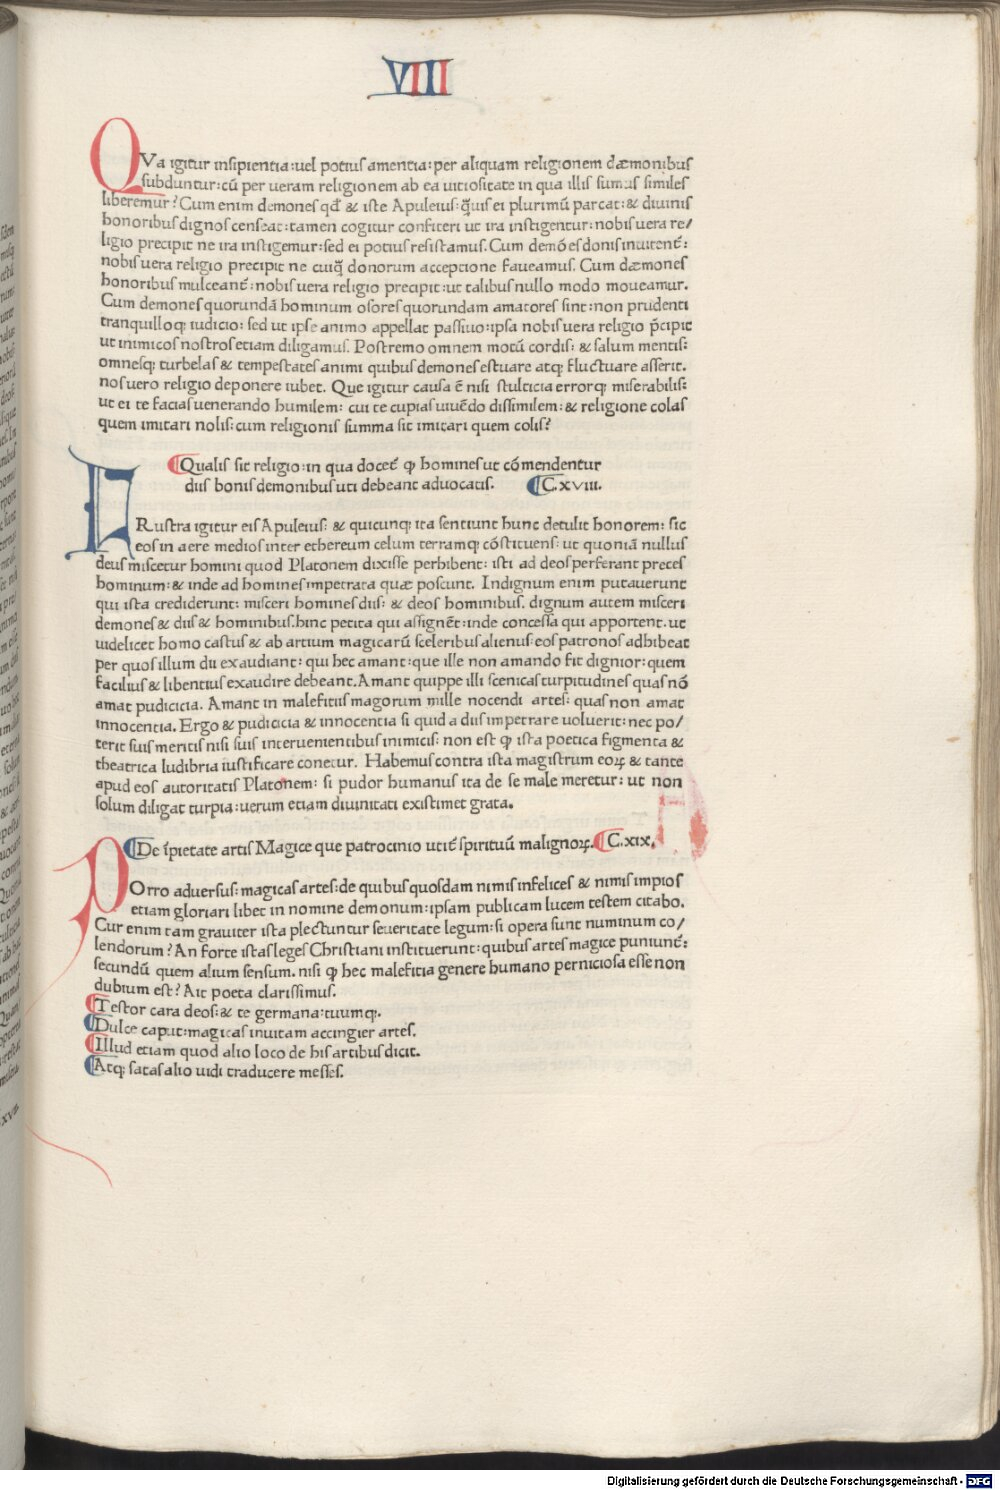 VIII
QVa igitur insipientia:uel potius amentia:per aliquam religionem dæmonibus
subduntur:cū per ueram religionem ab ea uitiositate in qua illis sumus similes
liberemur? Cum enim demones qđ & iste Apuleius: q̄uis ei plurimū parcat: & diuinis
honoribus dignos censeat: tamen cogitur confiteri ut ira instigentur: nobis uera re/
ligio precipit ne ira instigemur: sed ei potius resistamus. Cum demōes donis inuitent̄:
nobis uera religio precipit ne cuiq̄ donorum acceptione faueamus. Cum dæmones
honoribus mulceant̄: nobis uera religio precipit: ut talibus nullo modo moueamur.
Cum demones quorundā hominum osores quorundam amatores sint: non prudenti
tranquilloq; iudicio: sed ut ipse animo appellat passiuo: ipsa nobis uera religio p̄cipit
ut inimicos nostros etiam diligamus. Postremo omnem motū cordis: & salum mentis:
omnesq; turbelas & tempestates animi quibus demones estuare atq; fluctuare asserit.
nos uero religio deponere iubet. Que igitur causa ē nisi stulticia errorq; miserabilis:
ut ei te facias uenerando humilem: cui te cupias uiuēdo dissimilem: & religione colas
quem imitari nolis: cum religionis summa sit imitari quem colis?
Qualis sit religio: in qua docet̄ ꝙ homines ut cōmendentur
diis bonis demonibus uti debeant aduocatis. C.xviii.
FRustra igitur eis Apuleius: & quicunq; ita sentiunt hunc detulit honorem: sic
eos in aere medios inter ethereum celum terramq; cōstituens: ut quoniā nullus
deus miscetur homini quod Platonem dixisse perhibent: isti ad deos perferant preces
hominum: & inde ad homines impetrata quæ poscunt. Indignum enim putauerunt
qui ista crediderunt: misceri homines diis: & deos hominibus. dignum autem misceri
demones & diis & hominibus. hinc petita qui assignēt: inde concessa qui apportent. ut
uidelicet homo castus & ab artium magicarū sceleribus alienus: eos patronos adhibeat
per quos illum dii exaudiant: qui hec amant: que ille non amando fit dignior: quem
facilius & libentius exaudire debeant. Amant quippe illi scenicas turpitudines quas nō
amat pudicicia. Amant in maleficiis magorum mille nocendi artes: quas non amat
innocentia. Ergo & pudicicia & innocentia si quid a diis impetrare uoluerit: nec po/
terit suis meritis nisi suis interuenientibus inimicis: non est ꝙ ista poetica figmenta &
theatrica ludibria iustificare conetur. Habemus contra ista magistrum eoꝝ & tante
apud eos autoritatis Platonem: si pudor humanus ita de se male meretur: ut non
solum diligat turpia: uerum etiam diuinitati existimet grata.
De īpietate artis Magice que patrocinio utit̄ spirituū malignoꝝ. C.xix.
POrro aduersus: magicas artes: de quibus quosdam nimis infelices & nimis impios
etiam gloriari libet in nomine demonum: ipsam publicam lucem testem citabo.
Cur enim tam grauiter ista plectuntur seueritate legum: si opera sunt numinum co/
lendorum? An forte istas leges Christiani instituerunt: quibus artes magice puniunt̄:
secundū quem alium sensum. nisi ꝙ hec maleficia genere humano perniciosa esse non
dubium est? Ait poeta clarissimus.
Testor cara deos: & te germana: tuumq;.
Dulce caput: magicas inuitam accingier artes.
Illud etiam quod alio loco de his artibus dicit.
Atq; satas alio uidi traducere messes.
Digitalisierung gefördert durch die Deutsche Forschungsgemeinschaft - DFG